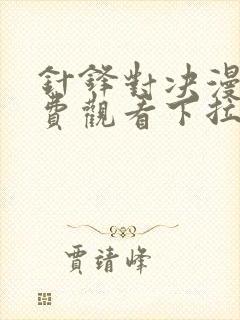 針鋒對决漫
費觀看下拉
賈靖峰